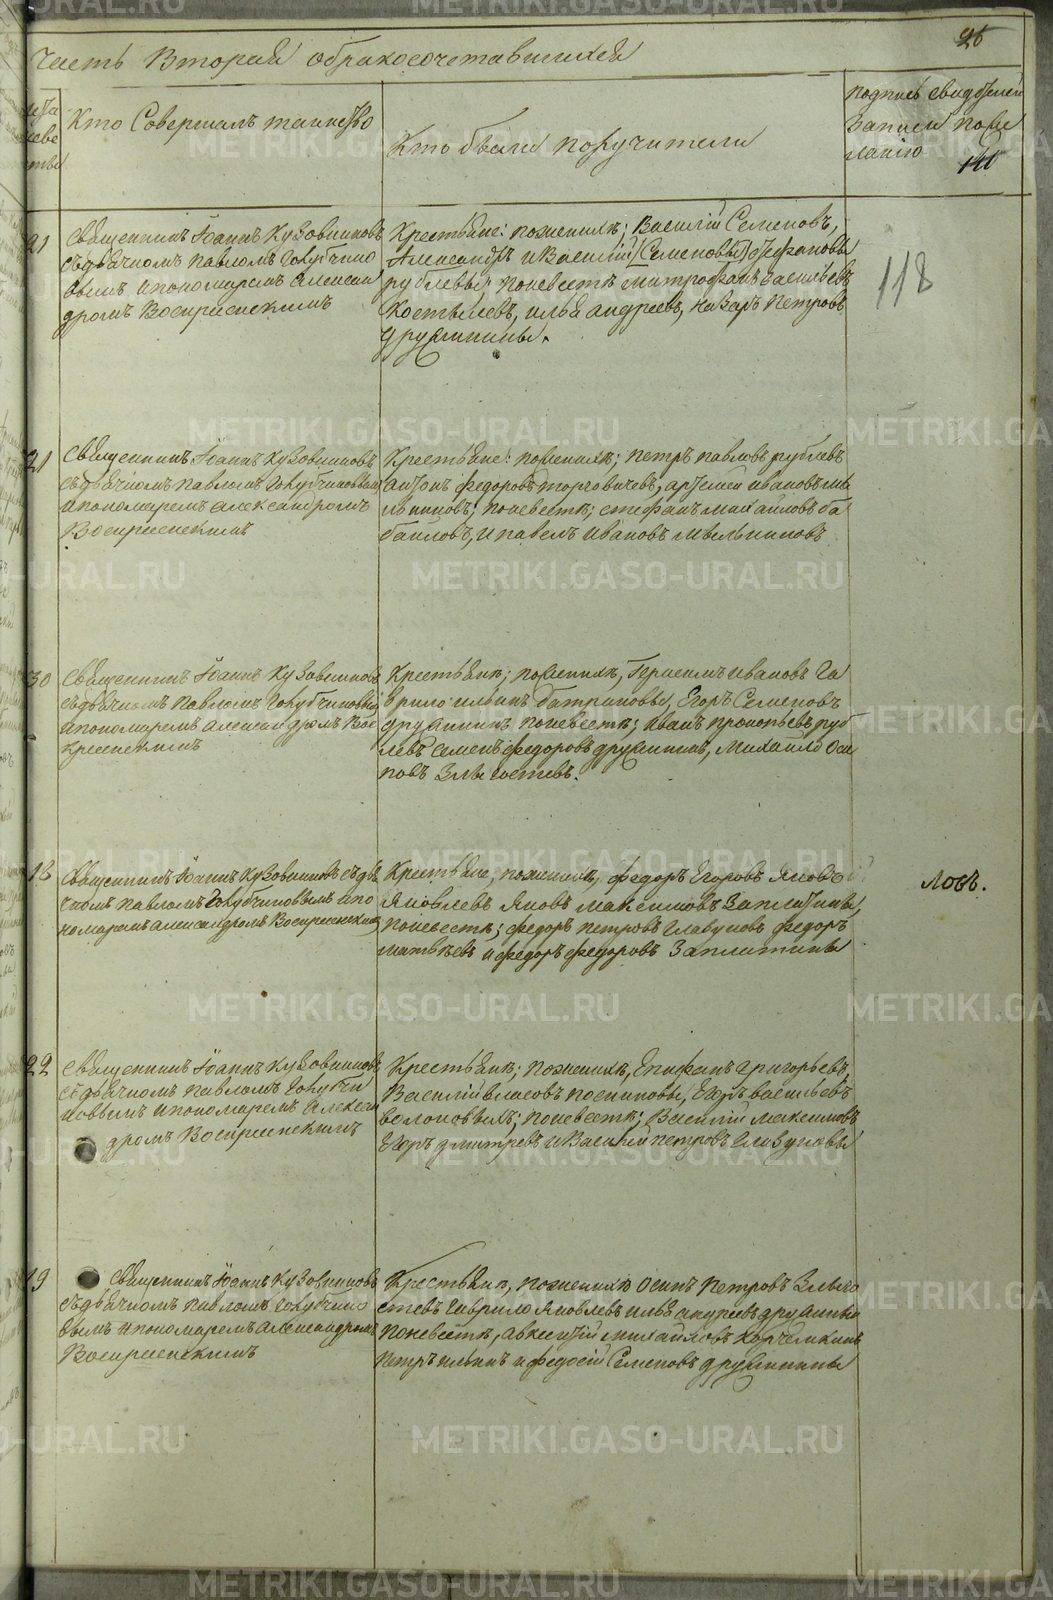 Часть Вторая о бракосочетавшихся
26
Кто Совершалъ таинство
Кто были поручители
подпись свидѣтелей
Записи по же
ланію
141
118
21
Священникъ Іоаннъ Кузовниковъ
съ дьячкомъ Павломъ Голубчико
вымъ и пономаремъ Алексан
дромъ Воскресенскимъ
Крестьяне: по женихѣ; Василій Семеновъ,
Александръ и Василій (Семеновы) Стефановы
рублевы по невестѣ митрофанъ Васильевъ
Костылевъ, илья андреевъ, Назаръ Петровъ
дружинины.
21
Священникъ Іоаннъ Кузовниковъ
съ дьячкомъ Павломъ Голубчиковым
и пономаремъ александромъ
Воскресенскимъ
Крестьяне: по женихѣ; петръ павловъ рублевъ
антонъ федоровъ торговичевъ, артемей ивановъ ме
льниковъ; по невестѣ; стефанъ михайловъ ба
баиловъ, и павелъ ивановъ мѣльниковъ
30
Священникъ Іоаннъ Кузовников
съ дьячкомъ Павломъ Голубчиковы
и пономаремъ александромъ Вос
кресенскимъ
Крестьянѣ; по женихѣ, Герасимъ ивановъ Га
врило ильинъ батраковы, Егоръ Семеновъ
дружининъ по невестѣ; иванъ прокопьевъ руб
левъ семенъ федоровъ дружининъ, михайло оси
повъ Злыгостевъ.
18
Священникъ Іоаннъ Кузовниковъ съ дья
чкомъ павломъ Голубчиковымъ и по
номаремъ александромъ Воскресенским
Крестьяне, по женихѣ, федоръ Егоровъ Яковъ
Яковлевъ Яковъ максимовъ Заплатины,
по невестѣ; федоръ петровъ Глазуновъ федоръ
матвѣевъ и федоръ федоровъ Заплатины
ловъ.
22
Священникъ Іоаннъ Кузовниковъ
съ дьячкомъ павломъ голубчи
ковымъ и пономаремъ Алексан
дромъ Воскресенскимъ
Крестьянѣ; по женихѣ, Епифанъ григорьевъ,
Василій власовъ Егоръ васильевъ
по невестѣ; Василій максимовъ
Егоръ дмитревъ и Василій петровъ Глазуновы
19
Священникъ Іоаннъ Кузовниковъ
съ дьячкомъ павломъ голубчико
вымъ и пономаремъ александромъ
Воскресенскимъ
Крестьянѣ, по женихѣ осипъ петровъ Злыго
стевъ гаврило яковлевъ илья андреевъ дружинин
по невестѣ, авксентій михайловъ
петръ ильинъ и федосій Семеновъ дружинины
METRIKI.GASO-URAL.RU